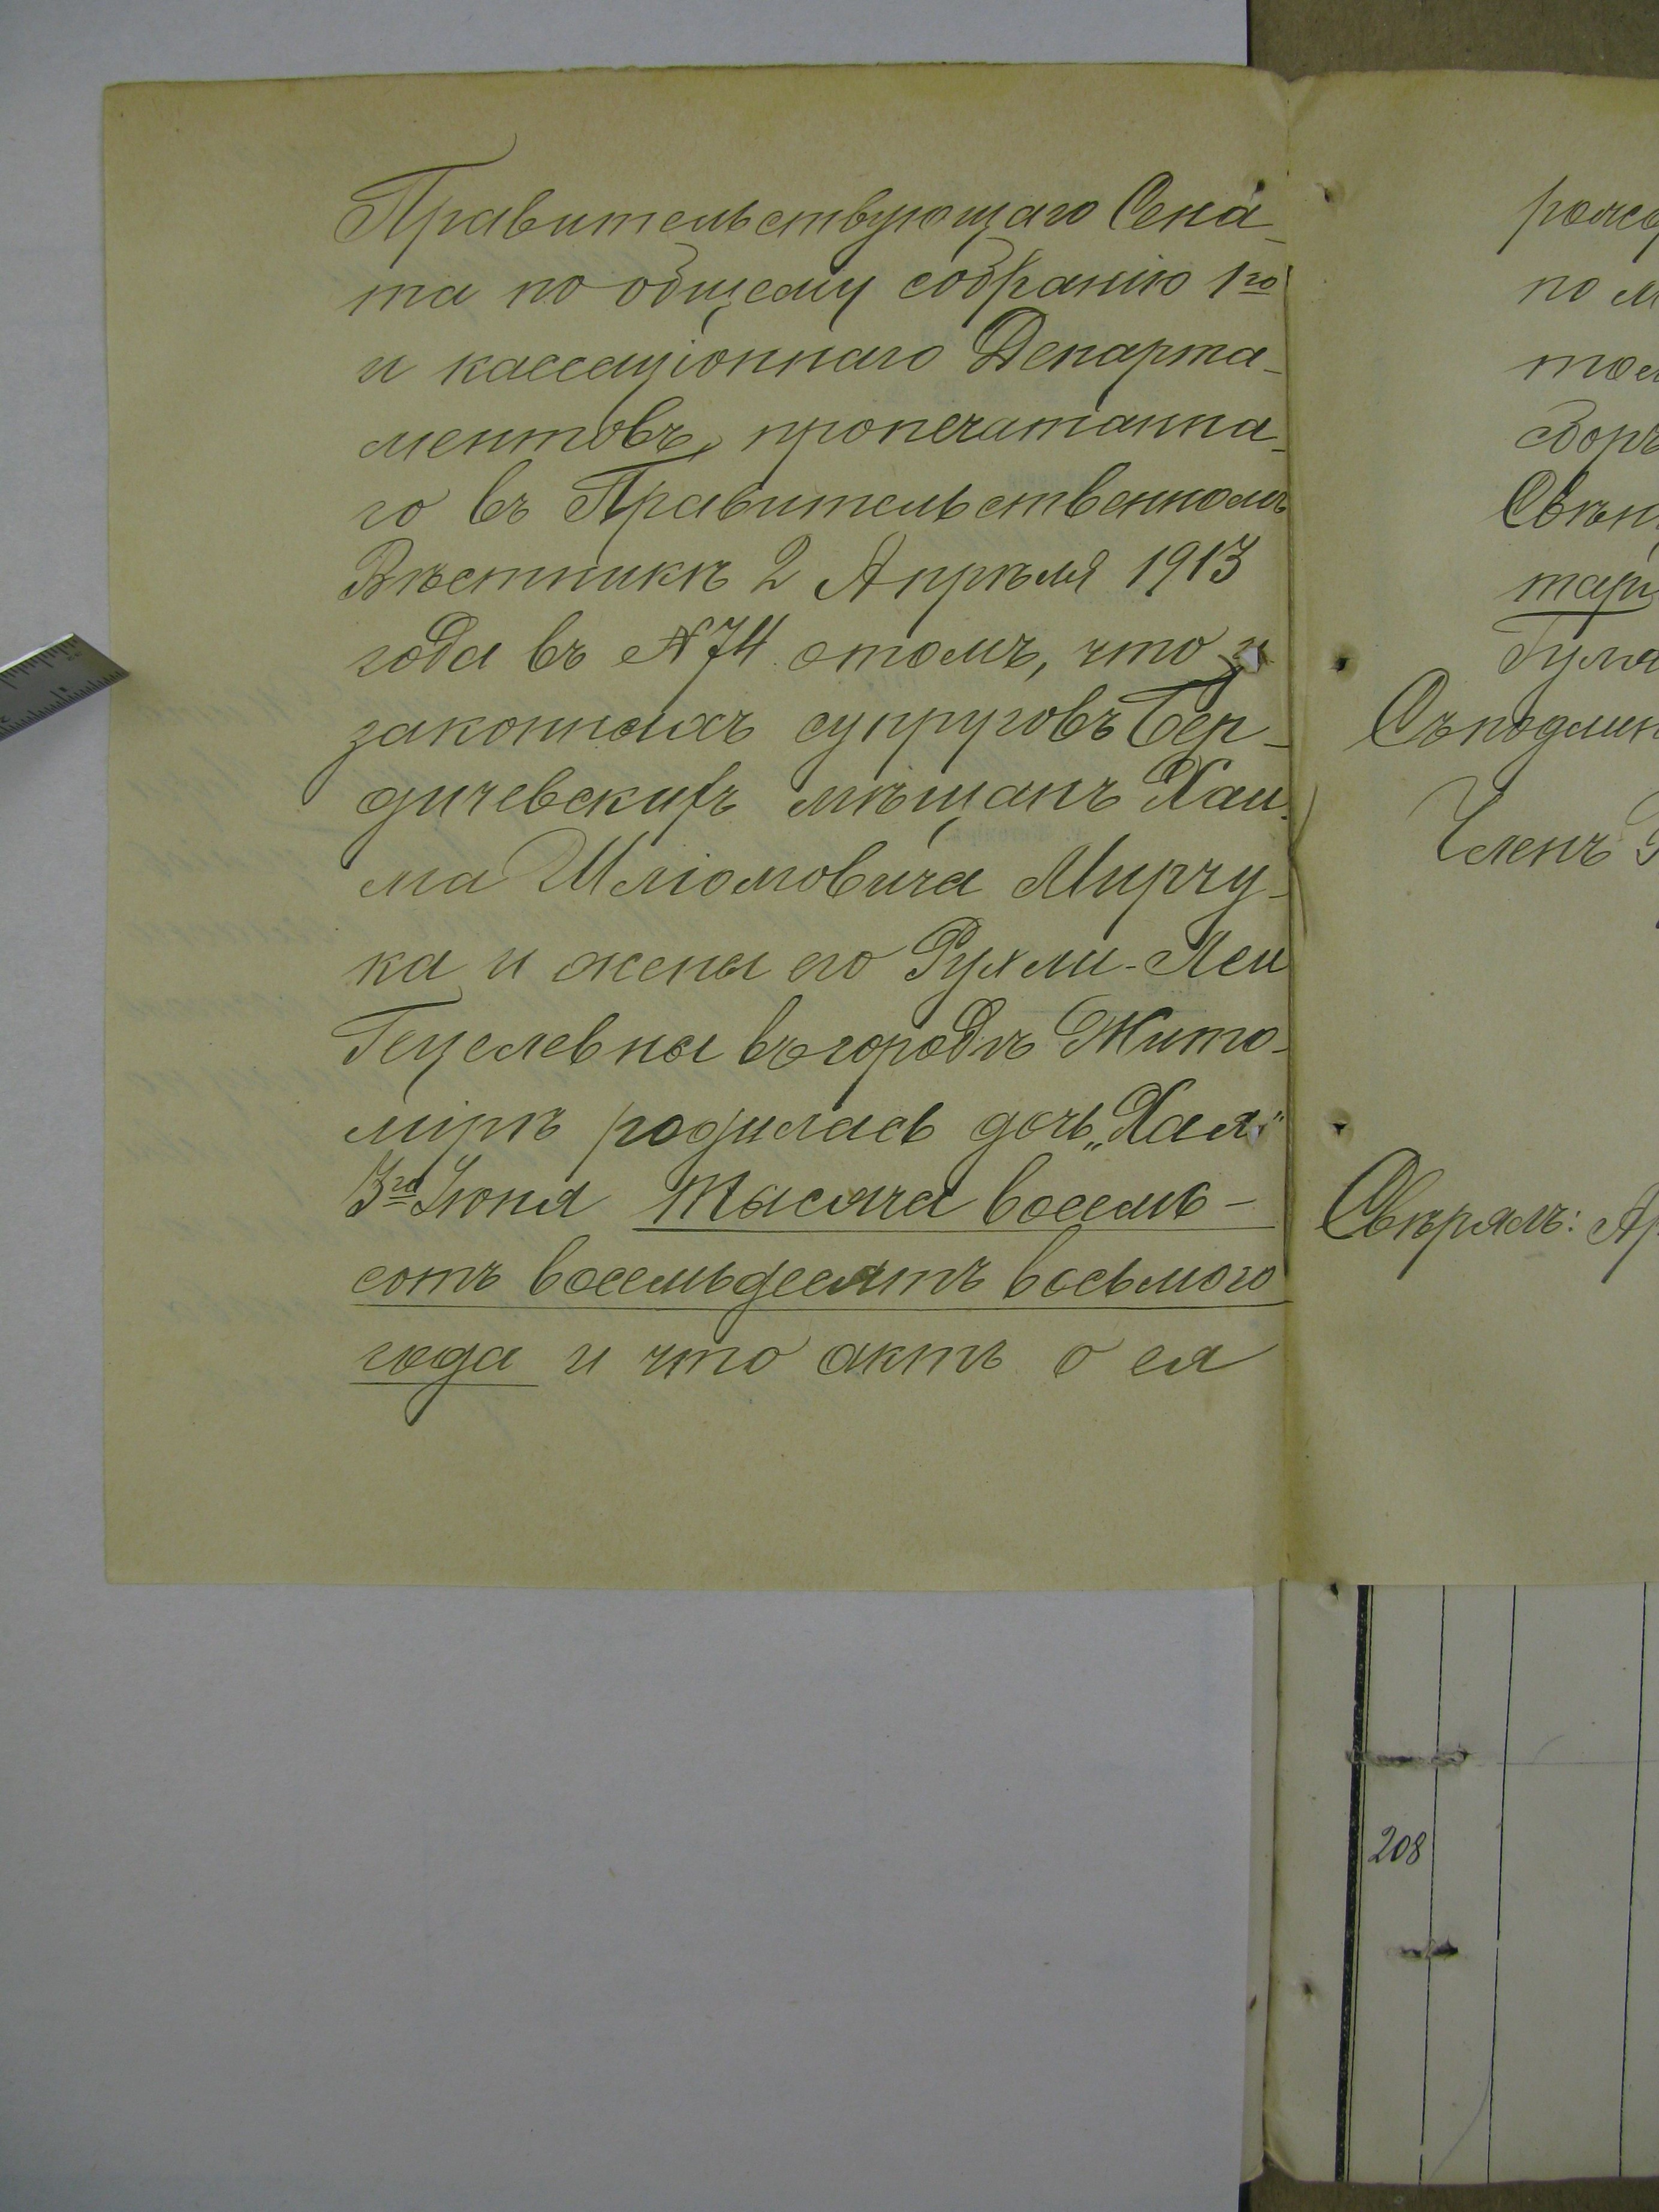 Правительствующаго Сена-
та по общему собранію 1го
и кассаціоннаго Департа-
ментовъ, пропечатанна-
го въ Правительственномъ
Вѣстникѣ 2 Апрѣля 1913
года въ №74 отомъ, что у
законныхъ супруговъ Бер-
дичевскихъ мѣщанъ Хаи-
ма Шліомовича Мирчу-
ка и жены его Рухли-Леи
Гецелевны въ городѣ Жито-
мірѣ родилась дочь „Хая"
3го Іюня тысяча восемь-
сотъ восемьдесятъ восьмого
года и что актъ о ея
по
Съ подлин
Членъ
Свѣрялъ:
208